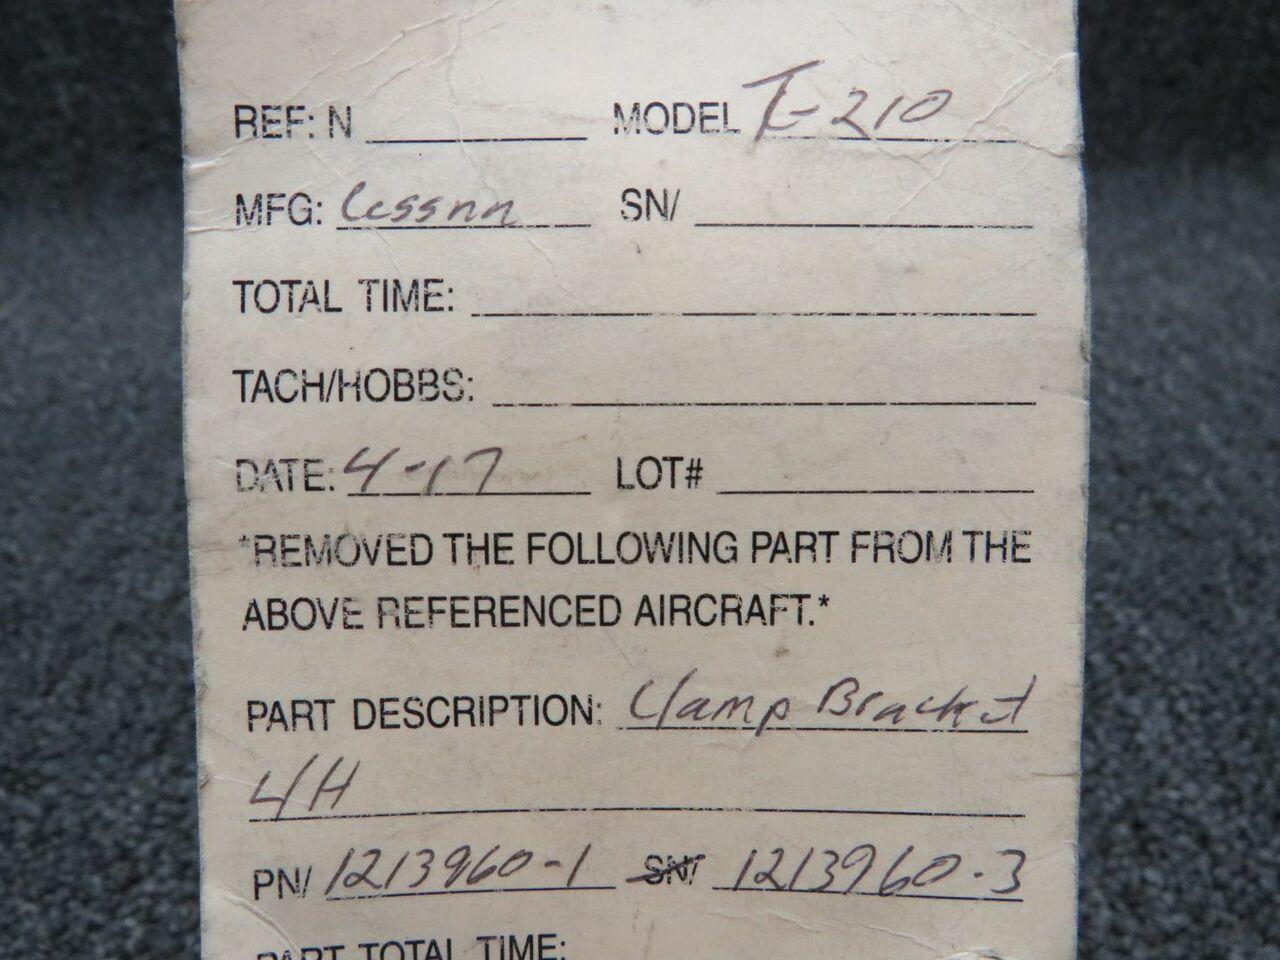 REF: N MODEL T-210
MFG: Cessna SN/
TOTAL TIME:
TACH/HOBBS:
DATE: 4-17 LOT#
*REMOVED THE FOLLOWING PART FROM THE
ABOVE REFERENCED AIRCRAFT.*
PART DESCRIPTION: Clamp Bracket
LH
PN/ 1213960-1 SN/ 1213960-3
PART TOTAL TIME: